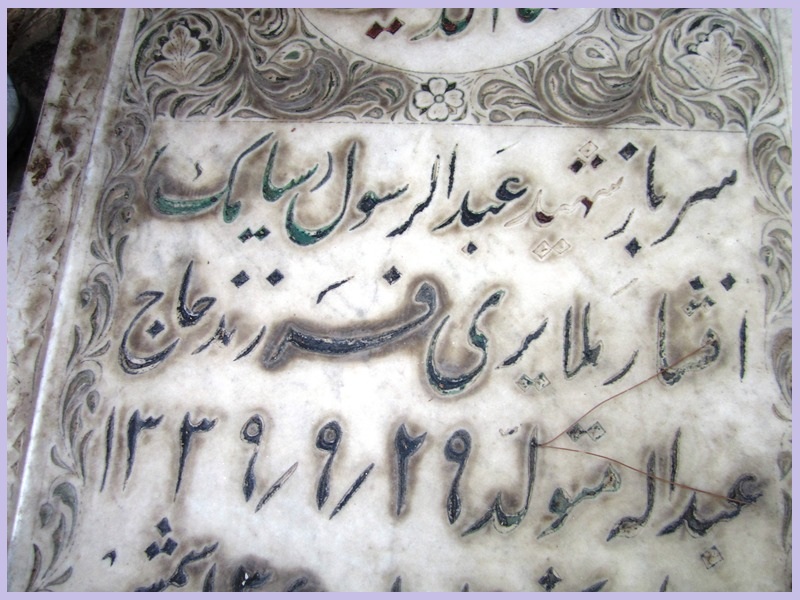 سرباز شهید عبدالرسول سیامک
افشار ملایری فرزند حاج
عبداله متولد ۲۹/۹/۱۳۳۹